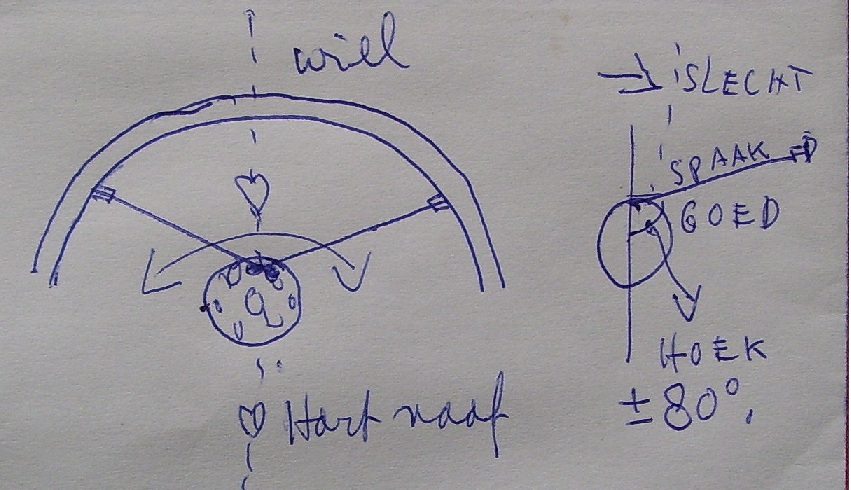 wiel
♡
♡ Hart naaf
→ SLECHT
SPAAK
GOED
HOEK
± 80°.